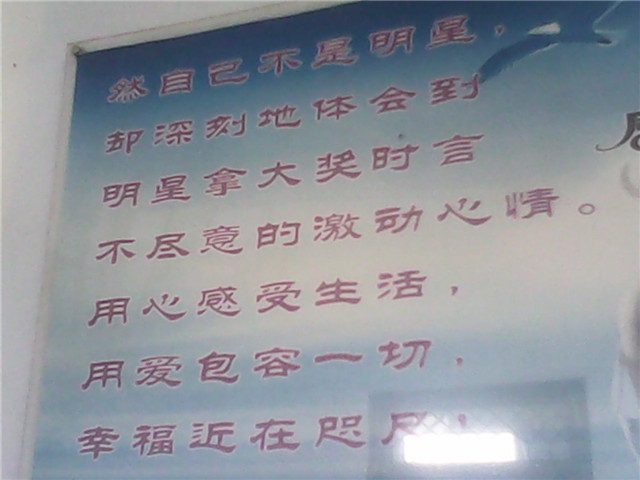 然自己不是明星，
却深刻地体会到
明星拿大奖时言
不尽意的激动心情。
用心感受生活，
用爱包容一切，
幸福近在咫尺！